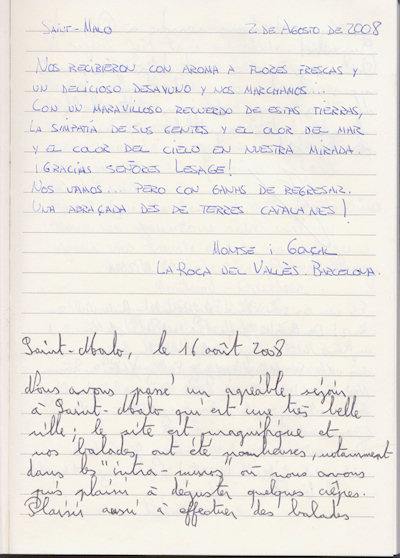 SAINT-MALO 2 DE AGOSTO DE 2008
NOS RECIBIERON CON AROMA A FLORES FRESCAS Y
UN DELICIOSO DESAYUNO Y NOS MARCHAMOS...
CON UN MARAVILLOSO RECUERDO DE ESTAS TIERRAS,
LA SIMPATÍA DE SUS GENTES Y EL OLOR DEL MAR
Y EL COLOR DEL CIELO EN NUESTRA MIRADA.
¡GRACIAS SEÑORES LESAGE!
NOS VAMOS... PERO CON GANAS DE REGRESAR.
UNA ABRAÇADA DES DE TERRES CATALANES!
MONTSE i
LA ROCA DEL VALLÈS. BARCELONA.
Saint-Malo, le 16 août 2008
Nous avons passé un agréable séjour
à Saint-Malo qui est une très belle
ville : le site est magnifique et
nos balades ont été nombreuses, notamment
dans les "intra-muros" où nous avons
pris plaisir à déguster quelques crêpes.
Plaisir aussi à effectuer des balades